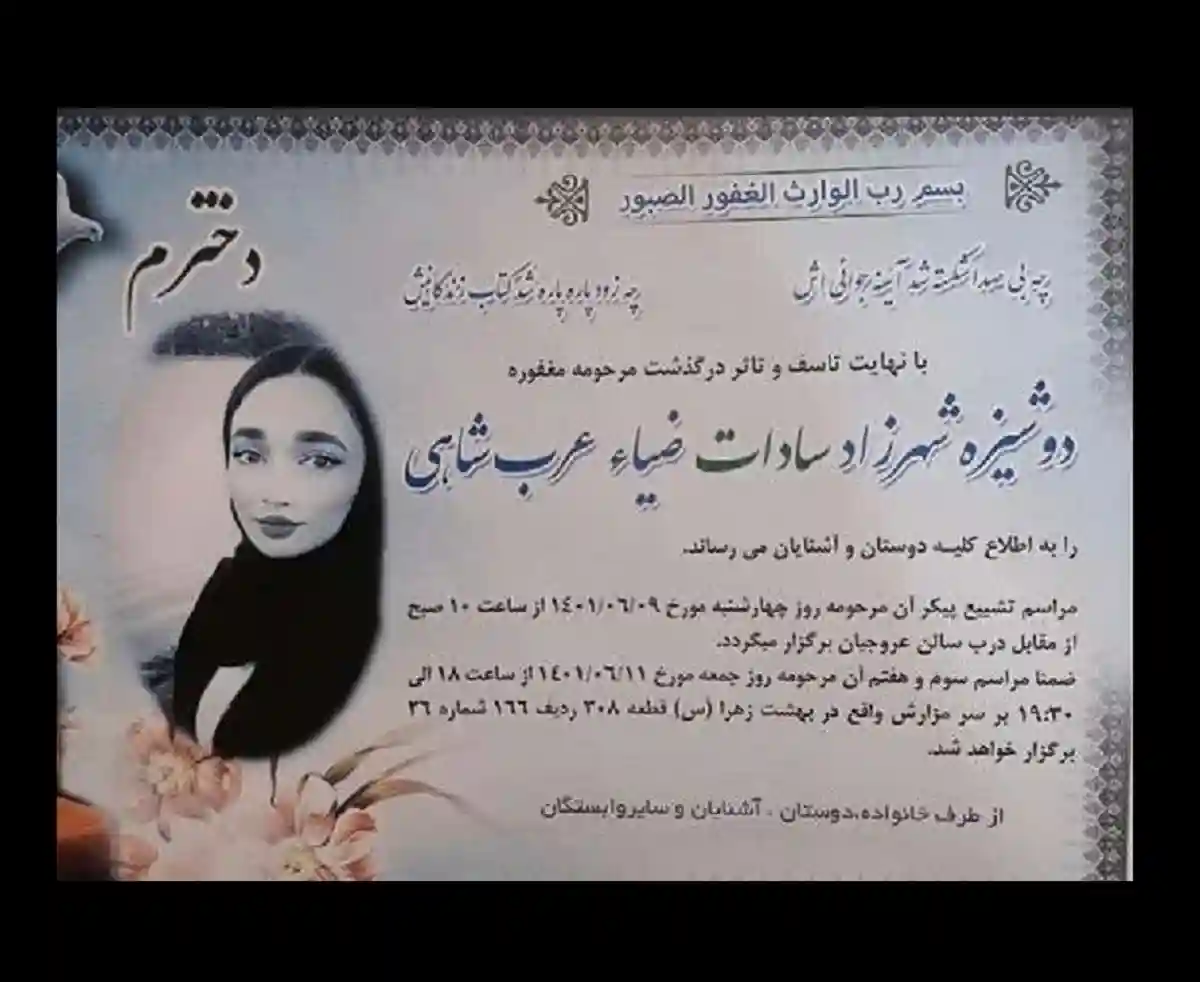 بسم رب الوارث الغفور الصبور
دخترم
چه بی صدا شکسته شد آیینه جوانی اش
چه زود پاره پاره شد کتاب زندگانیش
با نهایت تاسف و تاثر درگذشت مرحومه مغفوره
دوشیزه شهرزاد سادات ضیاء عرب شاهی
را به اطلاع کلیه دوستان و آشنایان می رساند.
مراسم تشییع پیکر آن مرحومه روز چهارشنبه مورخ ۱٤۰۱/۰٦/۰۹ از ساعت ۱۰ صبح
از مقابل درب سالن عروجیان برگزار میگردد.
ضمنا مراسم سوم و هفتم آن مرحومه روز جمعه مورخ ۱٤۰۱/۰٦/۱۱ از ساعت ۱۸ الی
۱۹:۳۰ بر سر مزارش واقع در بهشت زهرا (س) قطعه ۳۰۸ ردیف ۱٦٦ شماره ۲٦
برگزار خواهد شد.
از طرف خانواده،دوستان ، آشنایان و سایروابستگان